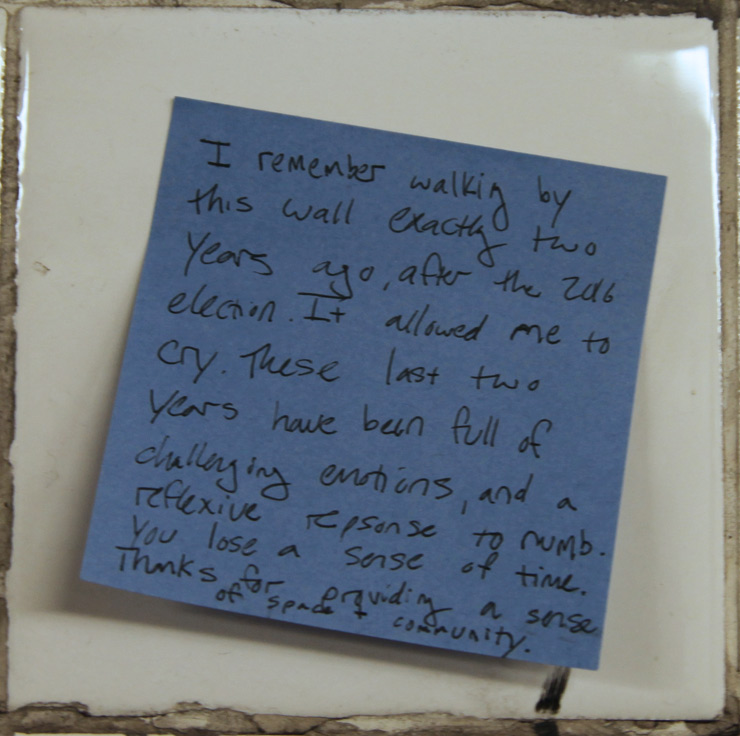 I remember walking by
this wall exactly two
years ago, after the 2016
election. It allowed me to
cry. These last two
years have been full of
challenging emotions, and a
reflexive repsonse to numb.
You lose a sense of time.
Thanks for providing a sense
of space + community.